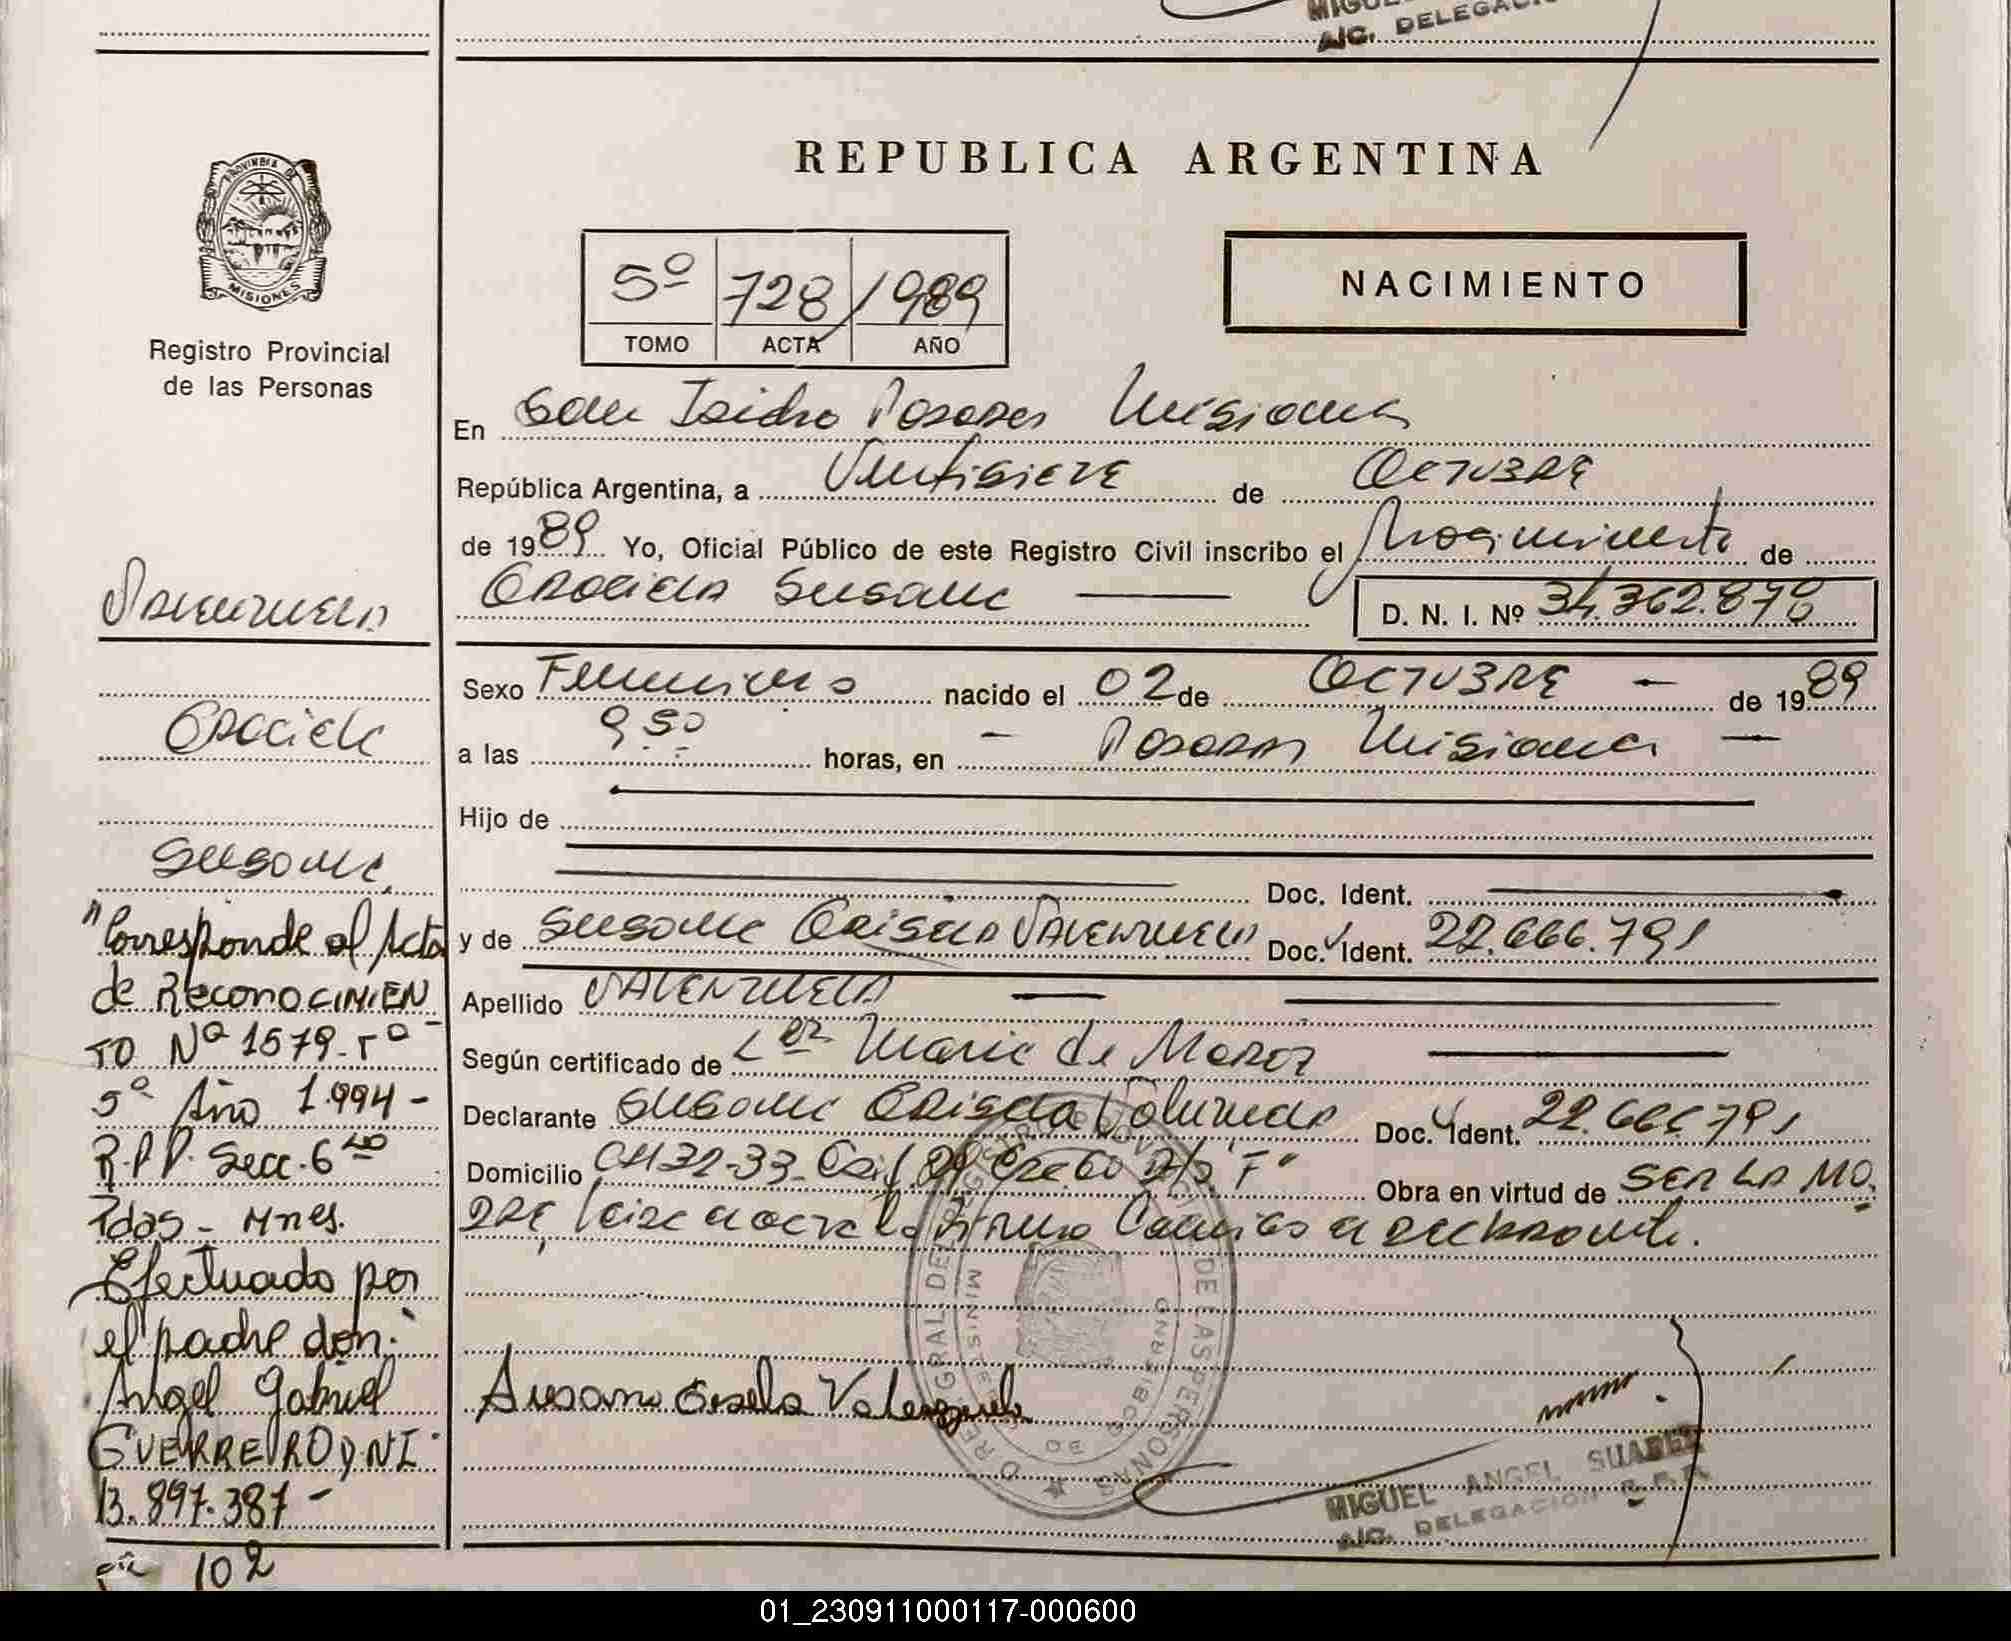 MIGUEL
A/C. DELEGACION
PROVINCIA DE
MISIONES
Registro Provincial
de las Personas
REPUBLICA ARGENTINA
5º 728 1989
TOMO ACTA AÑO
NACIMIENTO
En San Isidro Posadas Misiones
República Argentina, a Ventisiete de OCTUBRE
de 1989 Yo, Oficial Público de este Registro Civil inscribo el Nacimiento de
GRACIELA Susana
D. N. I. Nº 34.362.878
Sexo Femenino nacido el 02 de OCTUBRE - de 1989
a las 9.50 horas, en - Posadas Misiones -
Hijo de
Doc. Ident.
y de Susana Grisela VALENZUELA Doc. Ident. 22.666.791
Apellido VALENZUELA
Según certificado de Maria de
Declarante Susana Grisela Valenzuela Doc. Ident. 22.666.791
Domicilio CH 32-33- 60 "F" Obra en virtud de SER LA MA
DRE, la declarante.
Susana Grisela Valenzuela
REGISTRO GRAL DE LAS PERSONAS
MINISTERIO DE GOBIERNO
MIGUEL ANGEL SUAREZ
A/C. DELEGACION R.P.P.
VALENZUELA
Graciela
Susana
"Corresponde al Acta
de RECONOCIMIEN
TO Nº 1579-Tº
5º Año 1.994-
R.P.P. Secc. 6
Pdas- Mnes.
Efectuado por
el padre don:
Angel Gabriel
GUERREIRO D,NI
13.897.387-
102
01_230911000117-000600